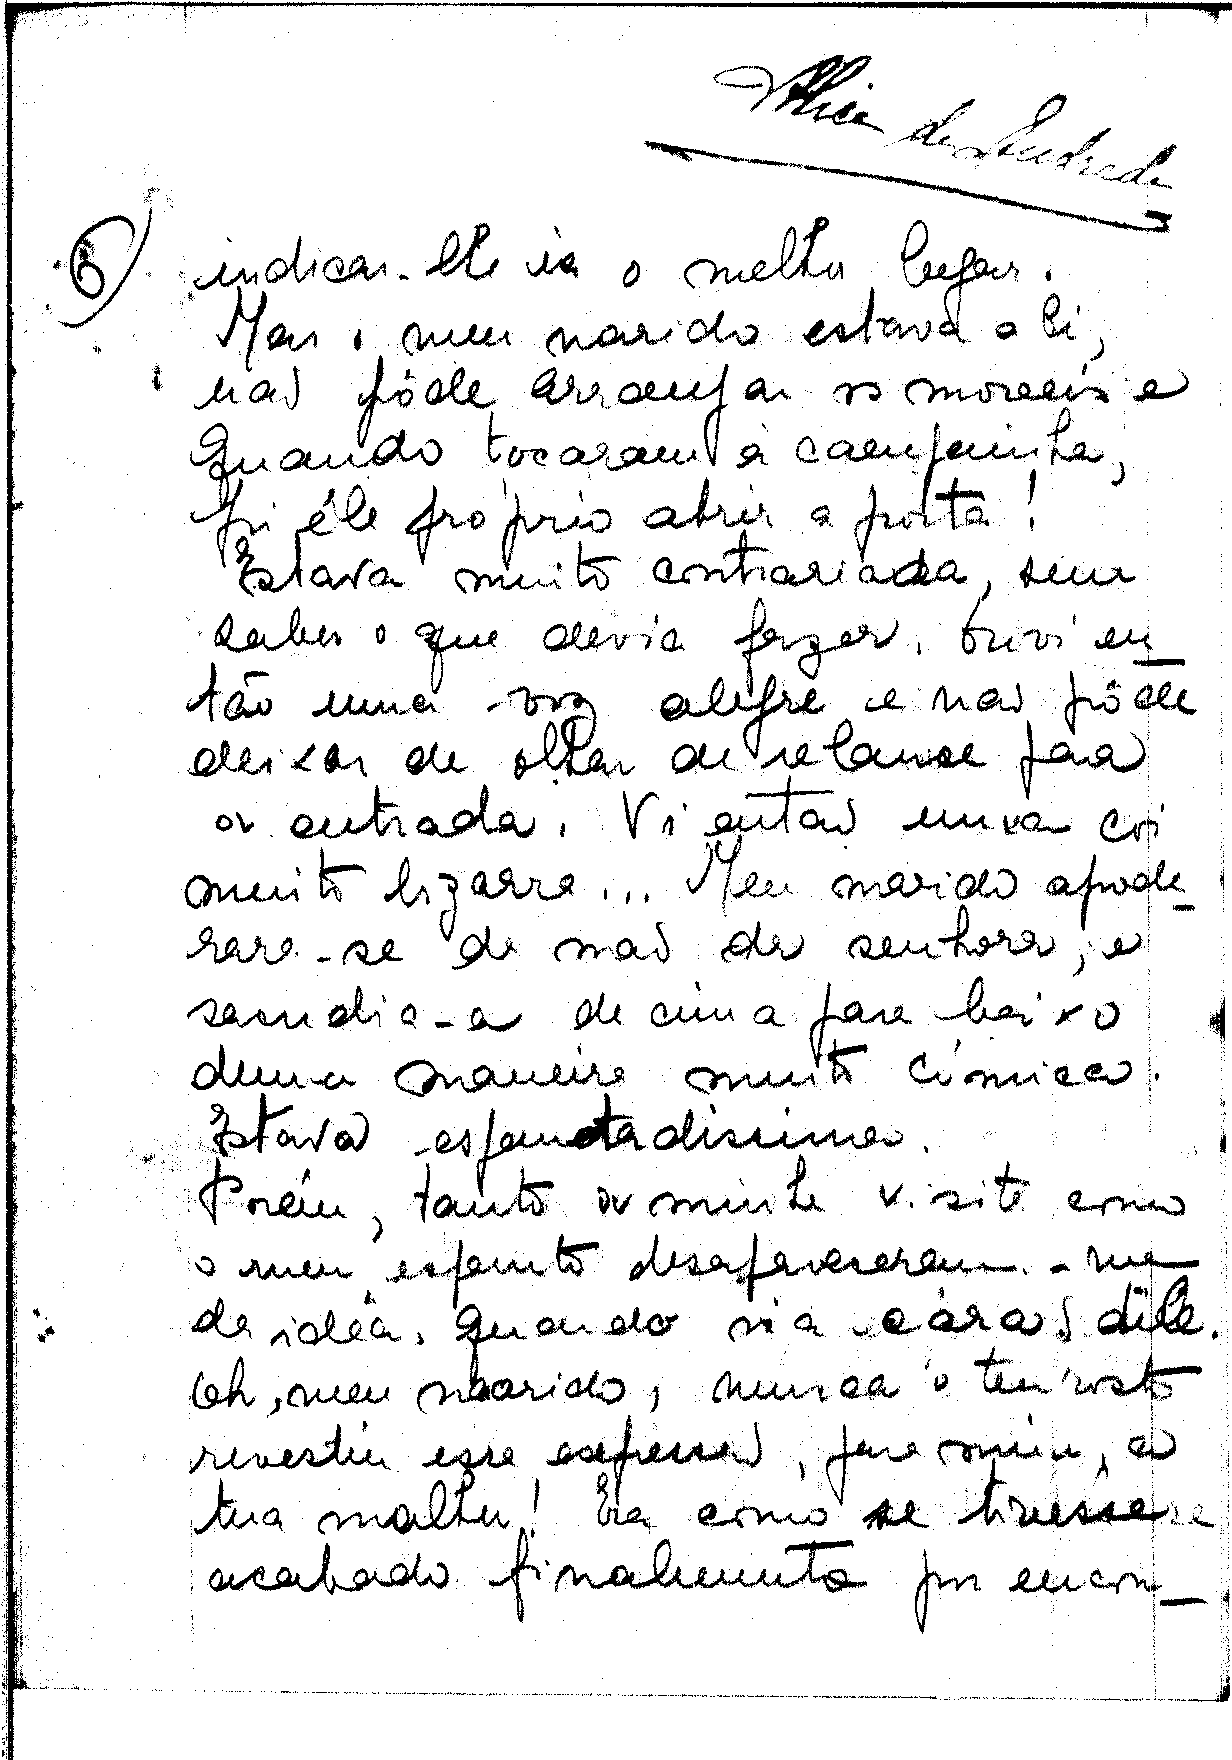 Alice de Andrade
6
indicar-lhe ia o melhor lugar.
Mas o meu marido estava ali,
não pôde arranjar os moveis e
quando tocaram à campainha,
foi êle próprio abrir a porta!
Estava muito contrariada, sem
saber o que devia fazer. Ouvi en
tão uma voz alegre e não pôde
deixar de olhar de relance para
a entrada. Vi então uma coi
muito bizarra... Meu marido apode-
rara-se da mão da senhora, e
sacudia-a de cima para baixo
duma maneira muito cómica.
Estava espantadissima.
Porém, tanto a minha visita como
o meu espanto desapareceram-me
da idéa, quando vi a cára dêle.
Oh, meu marido, nunca o teu rosto
revestiu esse expressão, para mim, a
tua mulher! Era como se tivesse
acabado finalmente por encon-